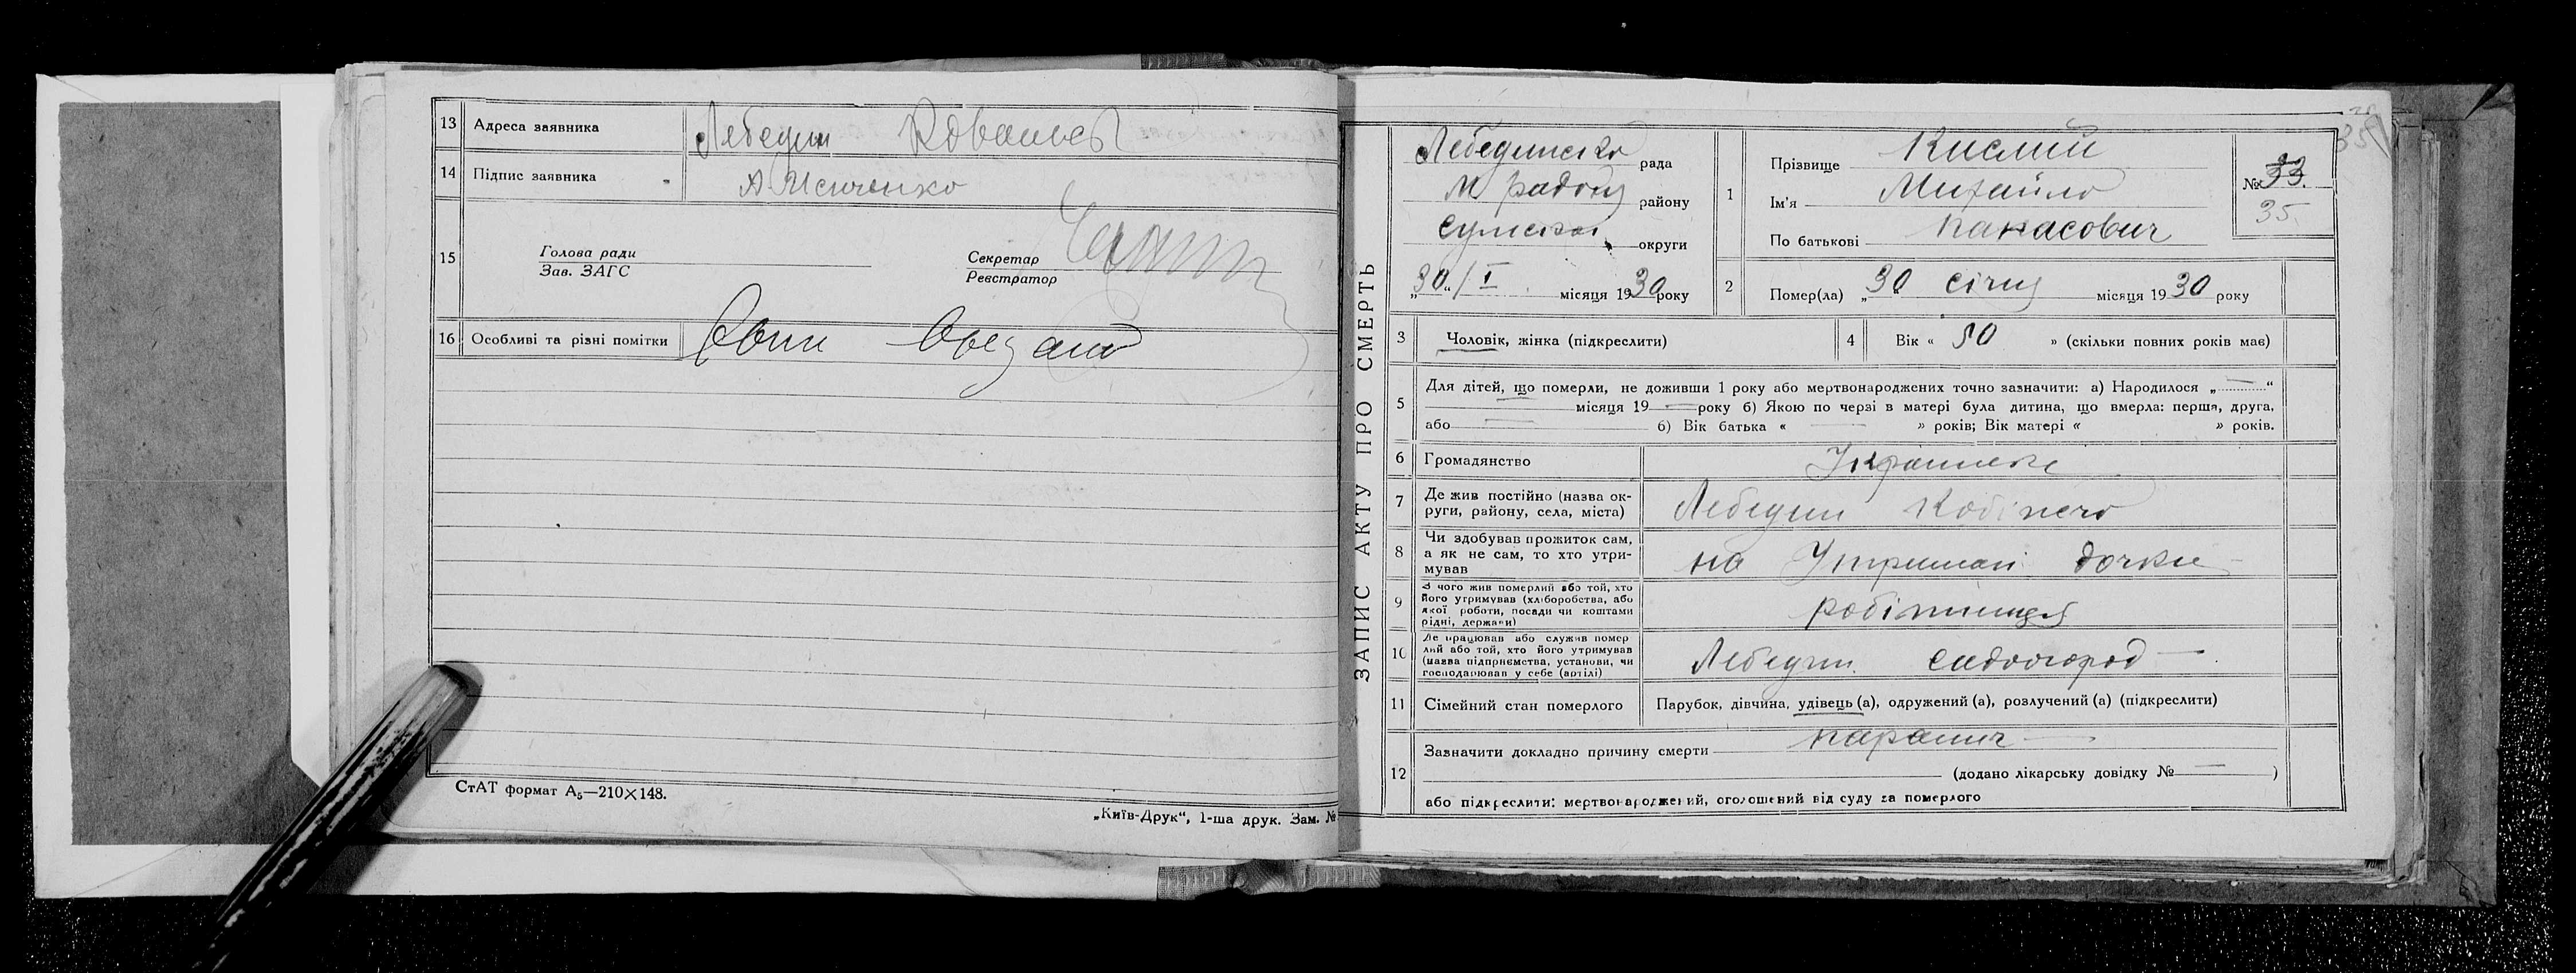 13 Адреса заявника Лебедин
14 Підпис заявника
15 Голова ради
Зав. ЗАГС
Секретар
Реєстратор
16 Особливі та різні помітки
СтАТ формат А₅—210×148.
„Київ-Друк“, 1-ша друк. Зам. №
ЗАПИС АКТУ ПРО СМЕРТЬ
Лебединсько рада
м радону району
Сумської округи
„30“ / I місяця 1930 року
1 Прізвище Кислий
Ім'я Михайло
По батькові Панасович
№ 33.
35.
35
2 Помер(ла) „30 січня місяця 1930 року
3 Чоловік, жінка (підкреслити)
4 Вік « 80 » (скільки повних років має)
5 Для дітей, що померли, не доживши 1 року або мертвонароджених точно зазначити: а) Народилося „ — “
місяця 19 — року б) Якою по черзі в матері була дитина, що вмерла: перша, друга,
або — б) Вік батька « — » років; Вік матері « » років.
6 Громадянство
7 Де жив постійно (назва ок-
руги, району, села, міста) Лебедин
8 Чи здобував прожиток сам,
а як не сам, то хто утри-
мував на Утримані дочки
9 З чого жив померлий або той, хто
його утримував (хліборобства, або
якої роботи, посади чи коштами
рідні, держави) робітниця
10 Де працював або служив помер
лий або той, хто його утримував
(назва підприємства, установи, чи
господарював у себе (артілі) Лебедин садоогород
11 Сімейний стан померлого Парубок, дівчина, удівець (а), одружений (а), розлучений (а) (підкреслити)
12 Зазначити докладно причину смерти параліч
(додано лікарську довідку № — )
або підкреслити: мертвонароджений, оголошений від суду за померлого